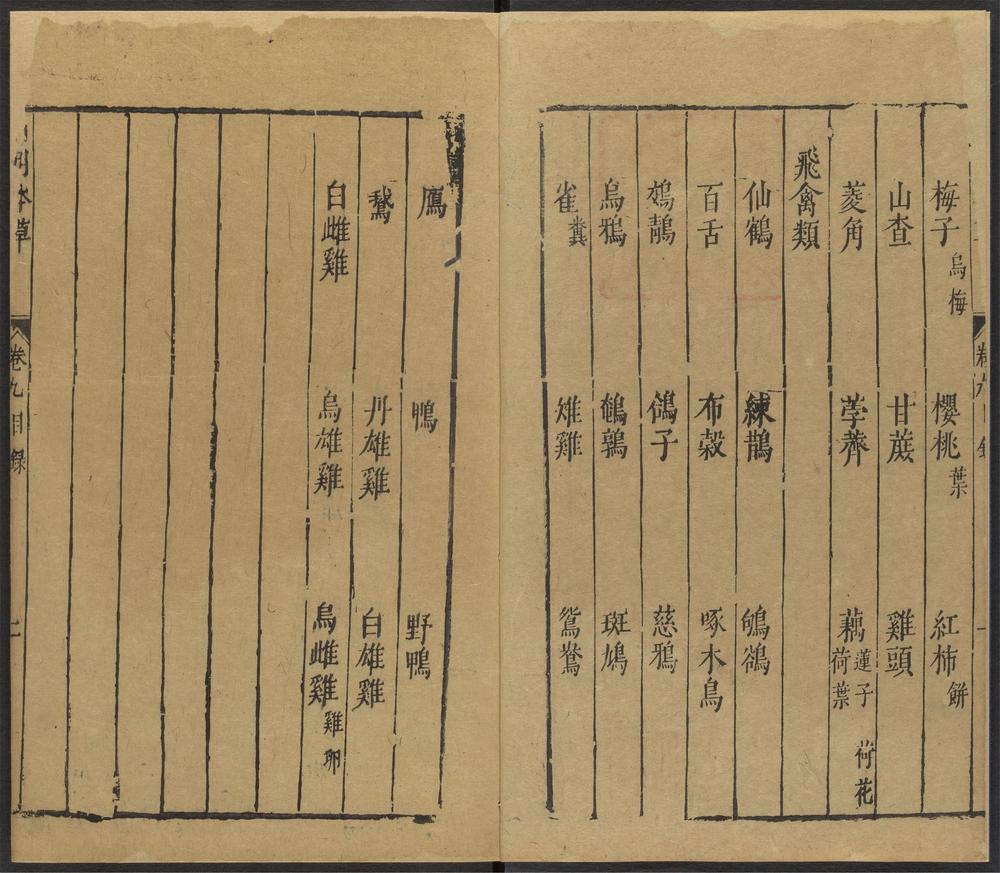 梅子 烏梅 櫻桃 葉 紅柿 餅
山查 甘蔗 雞頭
菱角 荸薺 藕 蓮子 荷葉 荷花
飛禽類
仙鶴 練鵲 鵮
百舌 布穀 啄木鳥
鴣 鴿子 慈鴉
烏鴉 鵪鶉 斑鳩
雀 糞 雉雞 鴛鴦
鷹 鴨 野鴨
鵞 丹雄雞 白雄雞
白雌雞 烏雄雞 烏雌雞 雞卵
本草 卷九目錄 二